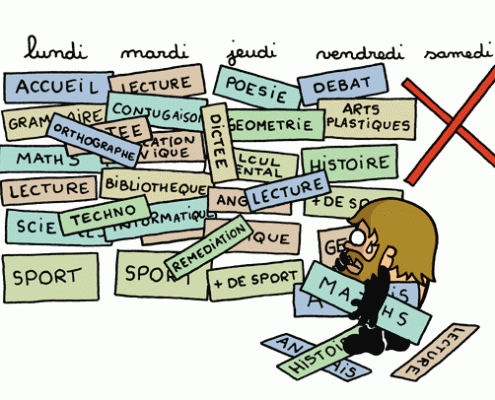 lundi mardi jeudi vendredi samedi
ACCUEIL
LECTURE
POESIE
DEBAT
CONJUGAISON
ARTS
PLASTIQUES
ORTHOGRAPHE
DICTEE
GEOMETRIE
MATHS
HISTOIRE
LECTURE
BIBLIOTHEQUE
LECTURE
+ DE SPO
TECHNO
INFORMATIQUE
REMEDIATION
SPORT
SPORT
+ DE SPORT
MATHS
HISTOI
LECTURE